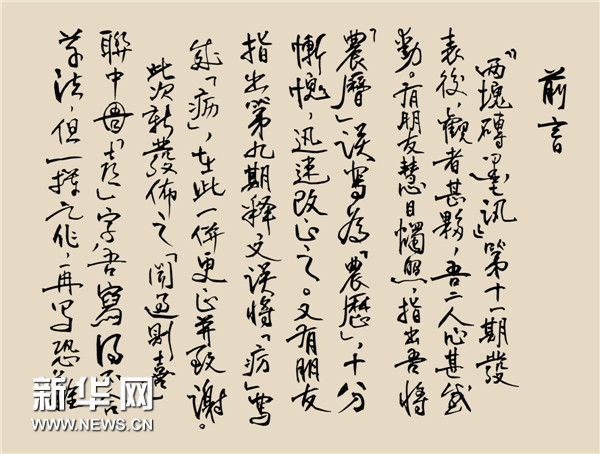 前言
『两塊磚墨讯』第十一期發
表後，觀者甚夥，吾二人心甚感
動。有朋友慧目燭照，指出吾將
「農曆」误寫為「農歷」，十分
慚愧，迅速改正之。又有朋友
指出第九期释文误將「」寫
成「」，在此一併更正并致謝。
此次新發佈之「聞過則喜」
聯中「喜」字，吾寫得不合
草法，但一揮作，再写恐難
新华网
WWW.NEWS.CN